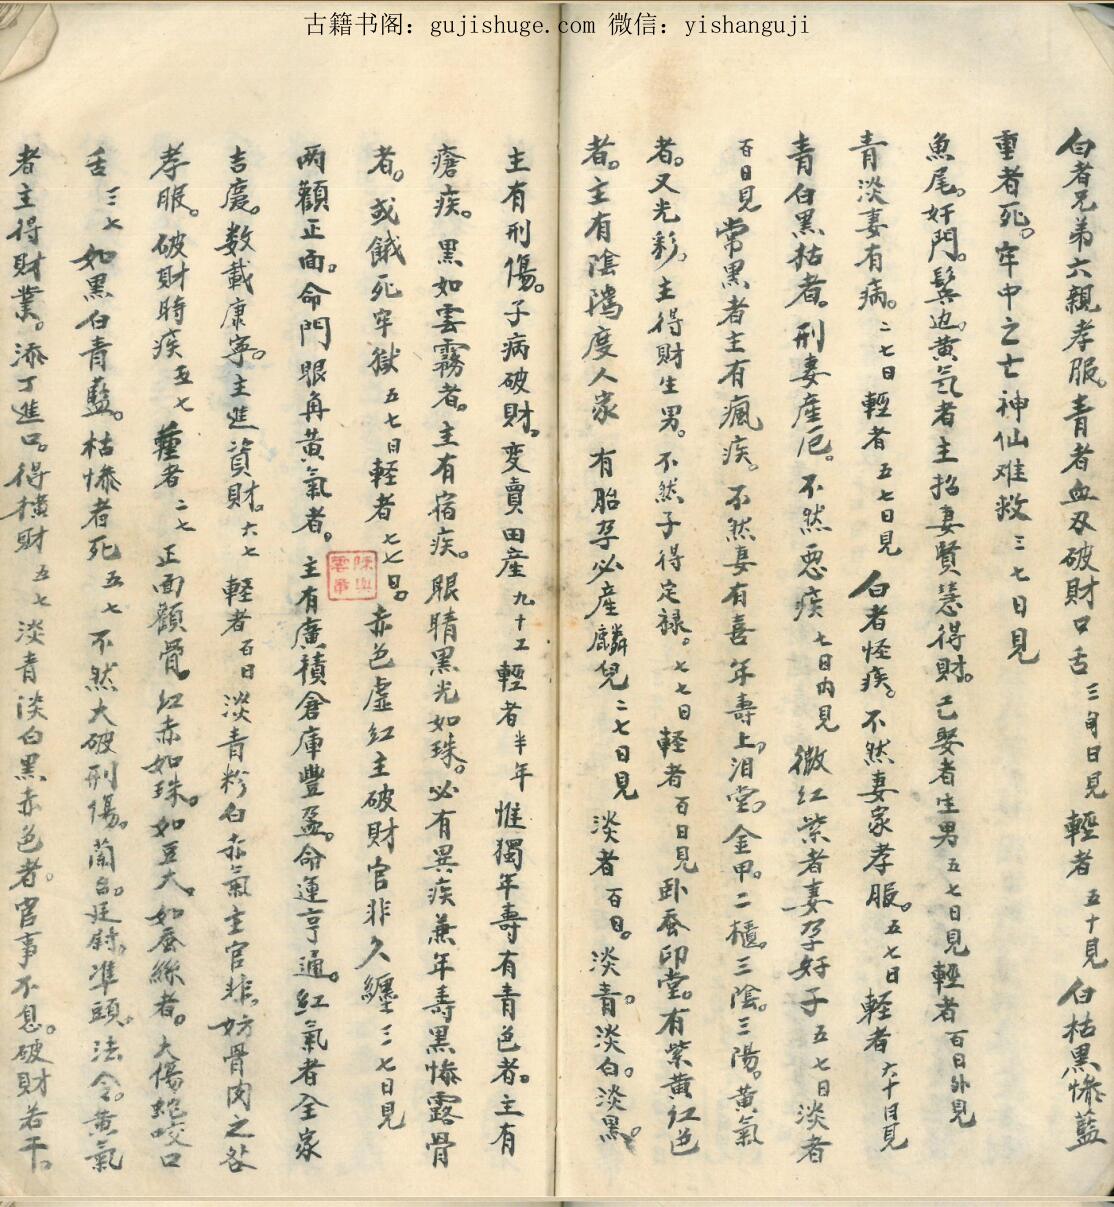 古籍书阁：gujishuge.com 微信：yishanguji
白者兄弟六親孝服。青者血刃破財口舌 三旬日見 輕者 五十見 白枯黑慘藍
重者死。牢中之亡神仙难救 三七日見
魚尾。奸門。鬓边。黄氣者主招妻賢慧得財。已娶者生男 五七日見 輕者 百日外見
青淡妻有病。二七日 輕者 五七日見 白者怪疾。不然妻家孝服。五七日 輕者 六十日見
青白黑枯者。刑妻産厄。不然惡疾 七日内見 微紅紫者妻孕好子 五七日 淡者
百日見 常黑者主有瘋疾。不然妻有喜 年壽上。泪堂。金甲。二櫃。三陰。三陽。黄氣
者。又光彩。主得財生男。不然子得定禄。七七日 軽者 百日見 卧蚕印堂。有紫黄红色
者。主有陰隲度人家 有胎孕必産麟兒 二七日見 淡者 百日。淡青。淡白。淡黑。
主有刑傷。子病破財。变賣田産 九十工 輕者 半年 惟獨年壽有青色者。主有
瘡疾。黑如雲霧者。主有宿疾。眼睛黑光如珠。必有異疾兼年壽黑慘露骨
者。或餓死牢獄 五七日 軽者 七七日。赤色虚红主破財官非久纏 三七日見
两顴正面。命門眼角黄氣者。主有廣積倉庫豐盈。命運亨通。红氣者全家
吉慶。数載康寧。主進資財。六七 軽者 百日 淡青粉白赤氣主官非。妨骨肉之咎
孝服。破財時疾 五七 輕者 二七 正面顴骨。红赤如珠。如豆大。如蚕絲者。大傷蛇咬口
舌 三七 如黑白青藍。枯慘者死 五七 不然大破刑傷。蘭台。廷尉。準頭。法令。黄氣
者主得財業。添丁進口。得横財 五七 淡青淡白黑赤色者。官事不息。破財若干。